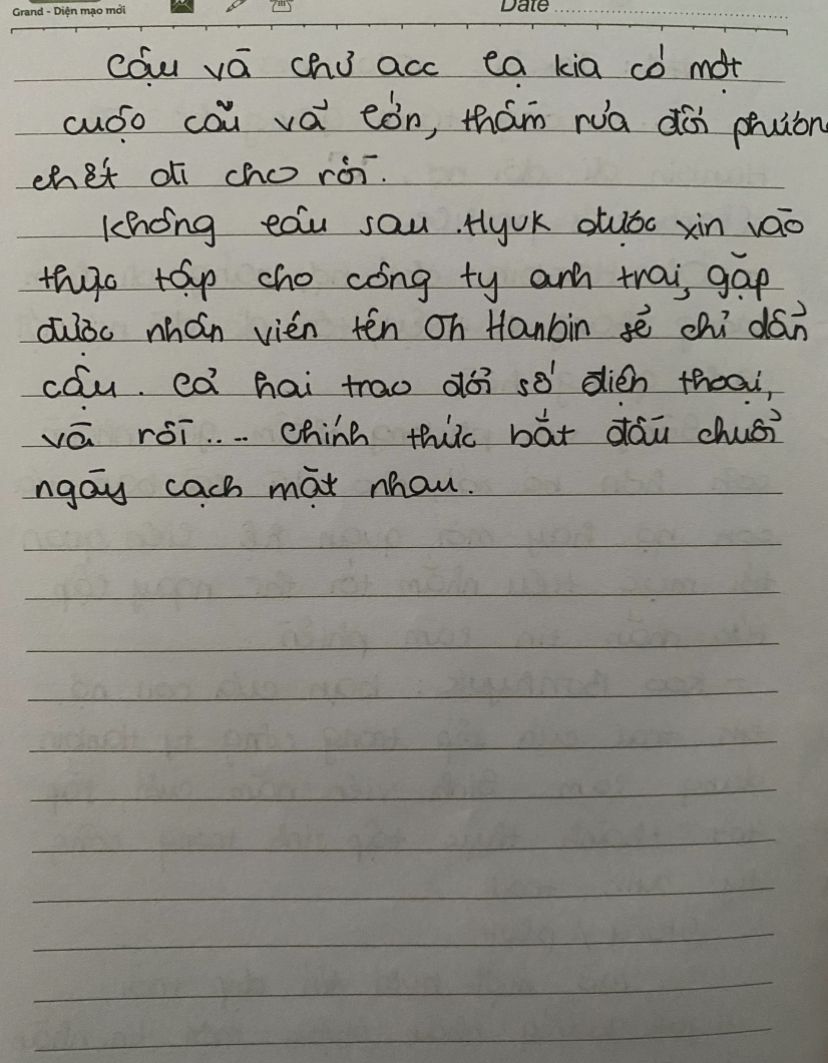 Grand - Diện mạo mới
Date
Cậu và chủ acc lạ kia có một
cuộc cãi vã lớn, thầm rủa đối phươn
chết đi cho rồi.
Không lâu sau. Hyuk được xin vào
thực tập cho công ty anh trai, gặp
được nhân viên tên Oh Hanbin sẽ chỉ dẫn
cậu. Cả hai trao đổi số điện thoại,
và rồi.... chính thức bắt đầu chuỗi
ngày cạch mặt nhau.